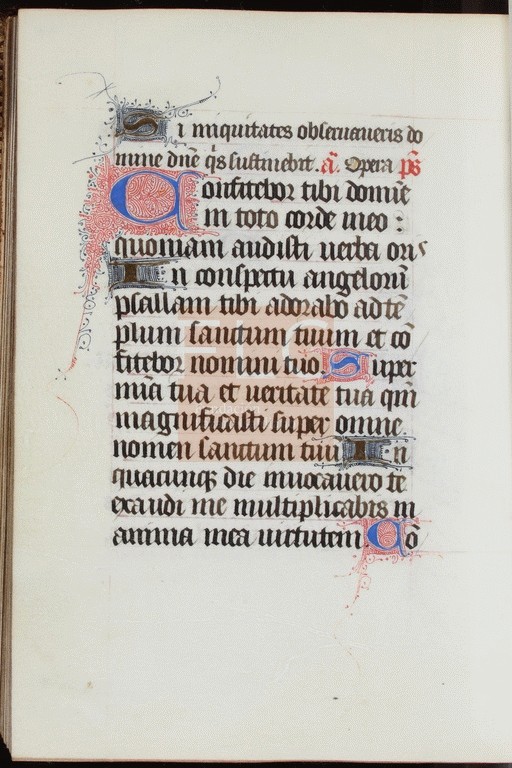 Si iniquitates obseruaueris do
mine dñe q̃s sustinebit. ã. Opera p̃s
Confitebor tibi domĩe
in toto corde meo :
quoniam audisti uerba oris
In conspectu angelorũ
psallam tibi adorabo ad tẽ
plum sanctum tuum et cõ
fitebor nomini tuo. Super
mĩa tua et ueritate tua qm̃
magnificasti super omne
nomen sanctum tuũ In
quacunqꝫ die inuocauero te
exaudi me multiplicabis in
anima mea uirtutem Cõ